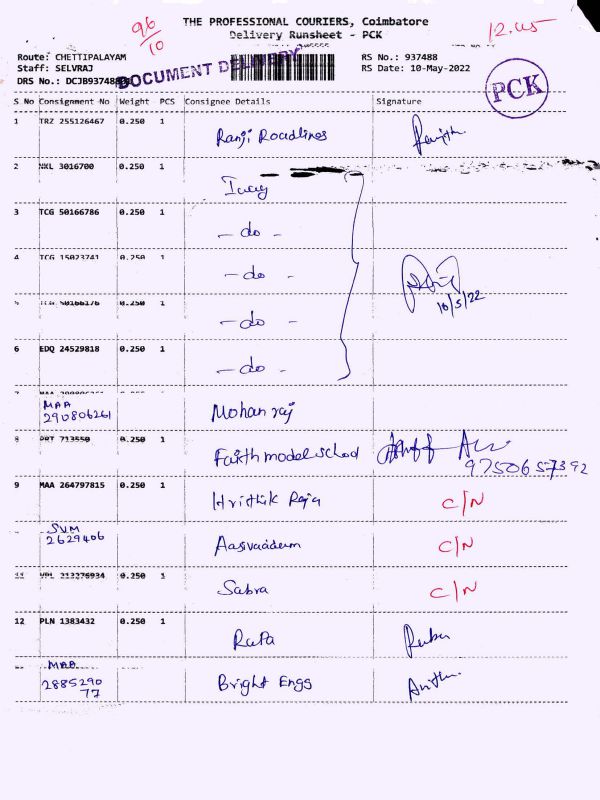 THE PROFESSIONAL COURIERS, Coimbatore
Delivery Runsheet - PCK
96/10
12.45
Route: CHETTIPALAYAM
Staff: SELVRAJ
DRS No.: DCJB93748
DOCUMENT DELIVERY
RS No.: 937488
RS Date: 10-May-2022
PCK
S No Consignment No Weight PCS Consignee Details Signature
1 TRZ 255126467 0.250 1 Ranji Roadlines
2 NXL 3016700 0.250 1
3 TCG 50166786 0.250 1 - do -
4 TCG 15023741 0.250 1 - do -
10/5/22
0.250 1 - do -
6 EDQ 24529818 0.250 1 - do -
MAA 290806261 Mohan raj
8 PRT 713550 0.250 1 Faith model school
9750657392
9 MAA 264797815 0.250 1 Hrithik Raja C/N
SVM 2629406 Aasivaadam C/N
11 VPL 213276934 0.250 1 Sabra C/N
12 PLN 1383432 0.250 1 RuPa
MAA 288529077 Bright Engs